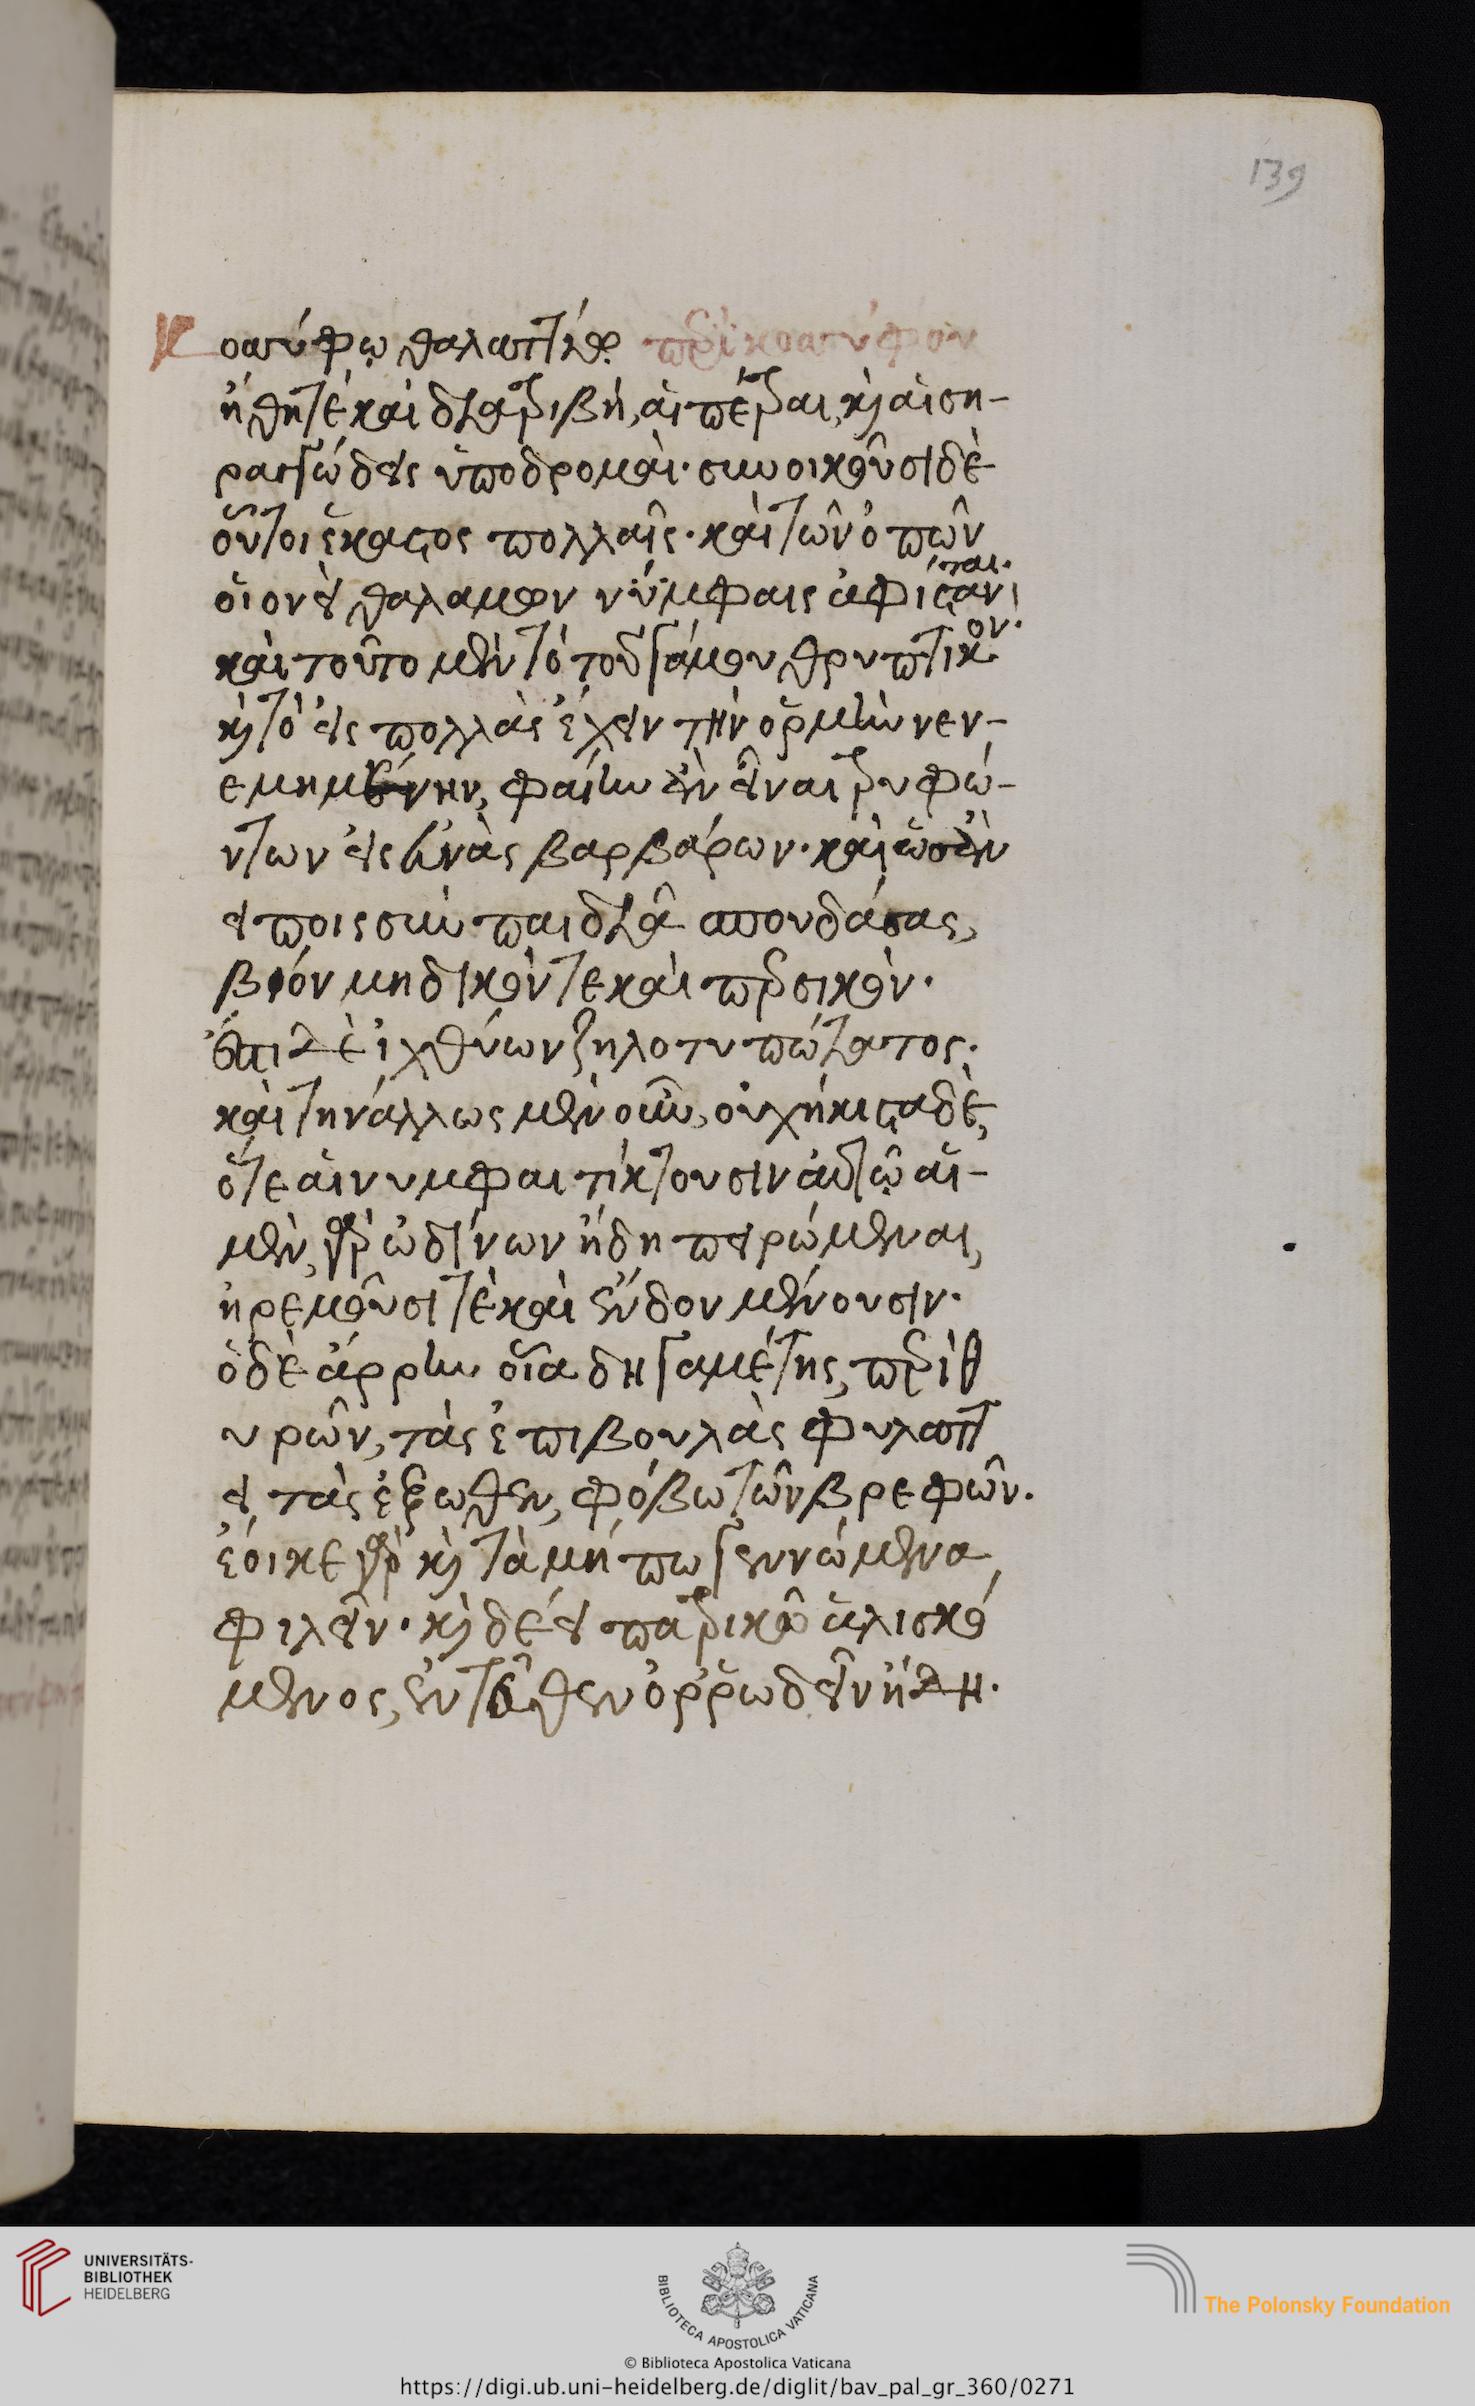 139
Κοσσύφω θαλαττίω περὶ κοσσύφου
ἤθη τὲ καὶ διατριβὴ, αἱ πέτραι, κ αἱ ση-
ραγγώδεις ὑποδρομαὶ. συνοικοῦσι δὲ
οὗτοι ἕκαστος πολλαῖς. καὶ τῶν ὀπῶν
οἷον εἰ θαλάμων νύμφαις ἀφίστανται.
καὶ τοῦτο μὲν τὸ τοῦ γάμου θρυπτικὸν.
κ τὸ εἰς πολλὰς ἔχειν τὴν ὁρμὴν νεν-
εμημένην, φαίην ἂν εἶναι τρυφώ-
ντων εἰς εὐνὰς βαρβάρων. καὶ ὡς ἂν
εἴποις σὺν παιδιᾶ σπουδάσας,
βίον μηδικόν τε καὶ περσικὸν.
ἔστι δὲ ἰχθύων ζηλοτυπώτατος.
καὶ τὴν ἄλλως μὲν οὖν, οὐχ ἥκιστα δὲ,
ὅτε αἱ νυμφαι τίκτουσιν αὐτῶ αἱ-
μὲν γὰρ ὠδίνων ἤδη πειρώμεναι,
ἠρεμοῦσι τὲ καὶ ἔνδον μένουσιν.
ὁ δὲ ἄρρην οἷα δὴ γαμέτης, περὶ θ
υρῶν, τὰς ἐπιβουλὰς φυλάττ
ει τὰς ἔξωθεν, φόβω τῶν βρεφῶν.
ἔοικε γὰρ κ τὰ μή πω γεννώμενα
φιλεῖν. κ δέει πατρικῶ ἁλισκό
μενος, ἐντεῦθεν ὀρρωδεῖν ἤδη.
UNIVERSITÄTS-
BIBLIOTHEK
HEIDELBERG
BIBLIOTECA APOSTOLICA VATICANA
The Polonsky Foundation
© Biblioteca Apostolica Vaticana
https://digi.ub.uni-heidelberg.de/diglit/bav_pal_gr_360/0271